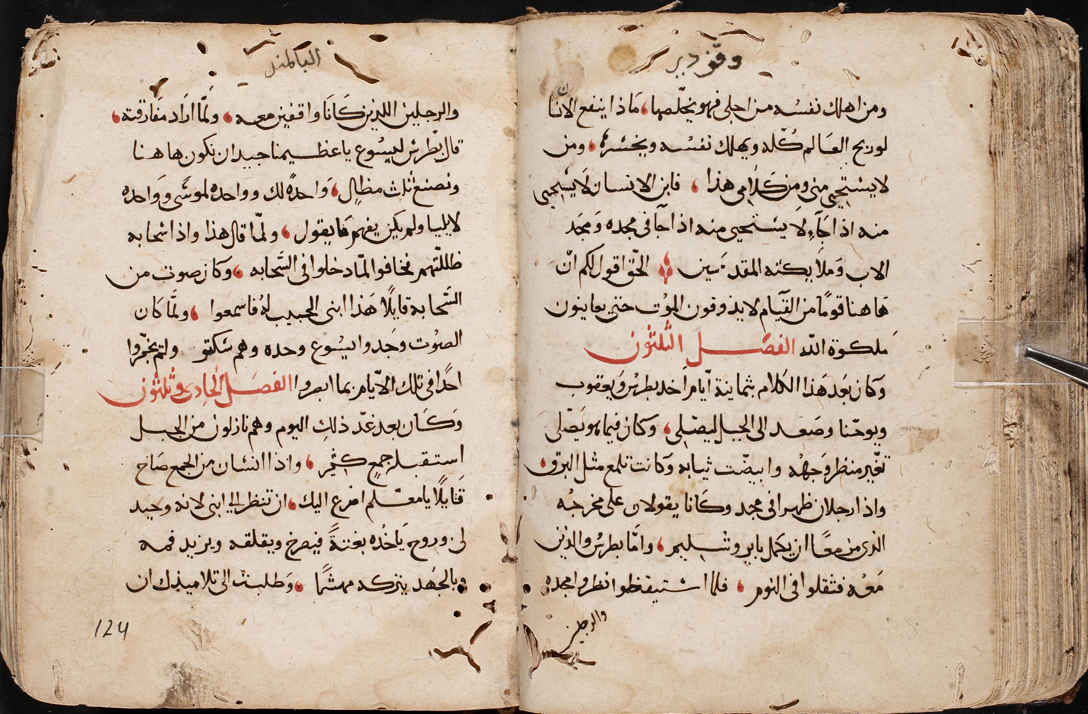 وقف دير
ومن اهلك نفسه من اجلي فهو يخلصها ماذا ينفع الانسان
لو ربح العالم كله ويهلك نفسه ويخسرها ومن
لا يستحيي مني ومن كلامي هذا فابن الانسان لا يستحيي
منه اذا جاء لا يستحيي منه اذا جا في مجده ومجد
الاب وملايكته المقدسين الحق اقول لكم ان
هاهنا قوما من القيام لا يدوقون الموت حتى يعاينون
ملكوة الله الفصل الثلثون
وكان بعد هذا الكلام ثمانية ايام اخد بطرس ويعقوب
ويوحنا وصعد الى الجبل ليصلي وكان فيما هو يصلي
تغير منظر وجهه وابيضت ثيابه وكانت تلمع مثل البرق
واذا رجلان ظهرا في مجد وكانا يقولان على مخرجه
الذي من معا ان يكمل بايروشليم واما بطرس والذين
معه فثقلوا في النوم فلما استيقظوا نظروا مجده
والرجلين
البلمند
والرجلين اللذين كانا واقفين معه ولما اراد مفارقته
قال بطرس ليسوع يا عظيمنا جيد ان نكون هاهنا
ونصنع ثلث مظال واحدة لك وواحده لموسى وواحده
لايليا ولم يكن يفهم ما يقول ولما قال هذا واذا سحابه
ظللتهم فخافوا لما دخلوا في السحابه وكان صوت من
السحابة قايلا هذا ابني الحبيب له فاسمعوا ولما كان
الصوت وجدوا يسوع وحده وهم سكتو ولم يخبروا
احدا في تلك الايام بما ابصروا الفصل الحادي وثلثون
وكان بعد غد ذلك اليوم وهم نازلون من الجبل
استقبله جمع كثير واذا انسان من الجمع صاح
قايلا يا معلم اضرع اليك ان تنظر الى ابني لانه وحيد
لي وروح ياخذه بغتة فيصرخ ويقلقه ويزبد فمه
وبالجهد يتركه مهشما وطلبت الى تلاميذك ان
124